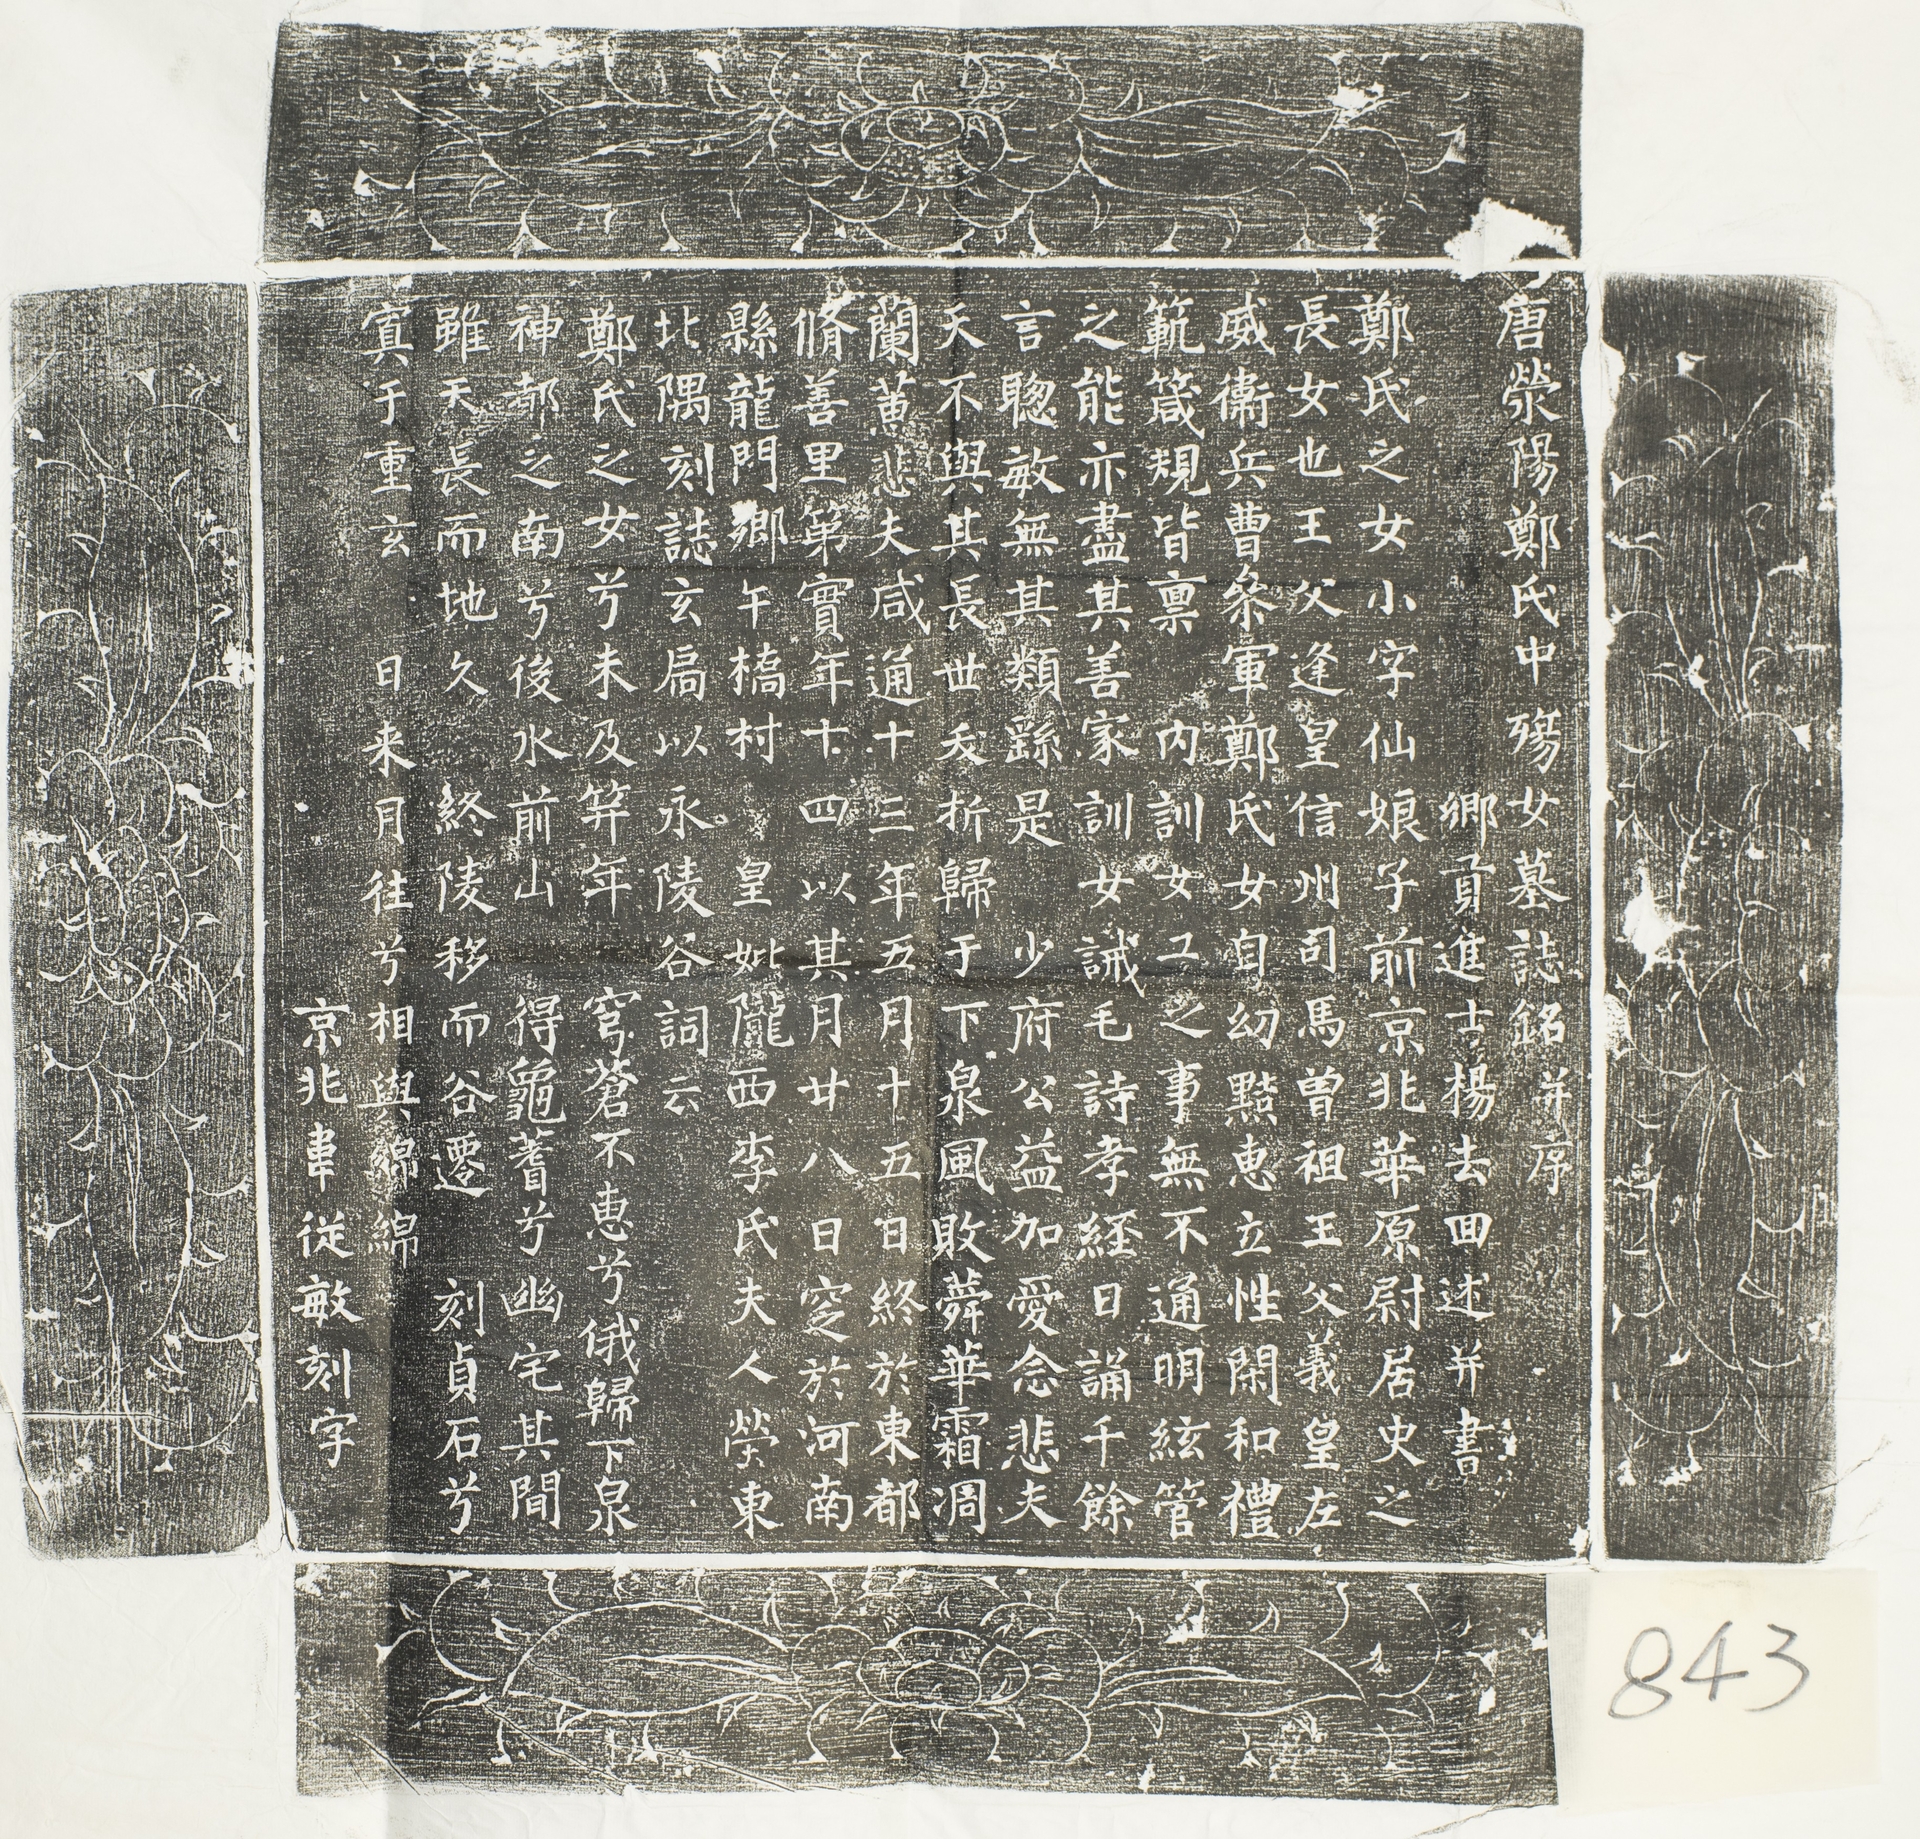 唐滎陽鄭氏中殤女墓誌銘并序
鄉貢進士楊去回述并書
鄭氏之女小字仙娘子前京兆華原尉居史之
長女也王父逢皇信州司馬曾祖王父義皇左
威衛兵曹叅軍鄭氏女自幼黠恵立性閑和禮
範箴規皆禀內訓女工之事無不通明絃管
之能亦盡其善家訓女誡毛詩孝経日誦千餘
言聦敏無其類繇是少府公益加愛念悲夫
天不與其長世夭折歸于下泉風敗蕣華霜凋
蘭蕙悲夫咸通十三年五月十五日終於東都
脩善里第實年十四以其月廿八日窆於河南
縣龍門鄉午橋村皇妣隴西李氏夫人塋東
北隅刻誌玄扃以永陵谷詞云
鄭氏之女兮未及笄年穹蒼不恵兮俄歸下泉
神都之南兮後水前山得龜蓍兮幽宅其間
雖天長而地久終陵移而谷遷刻貞石兮
寘于重玄日来月往兮相與綿綿
京兆車從敏刻字
843